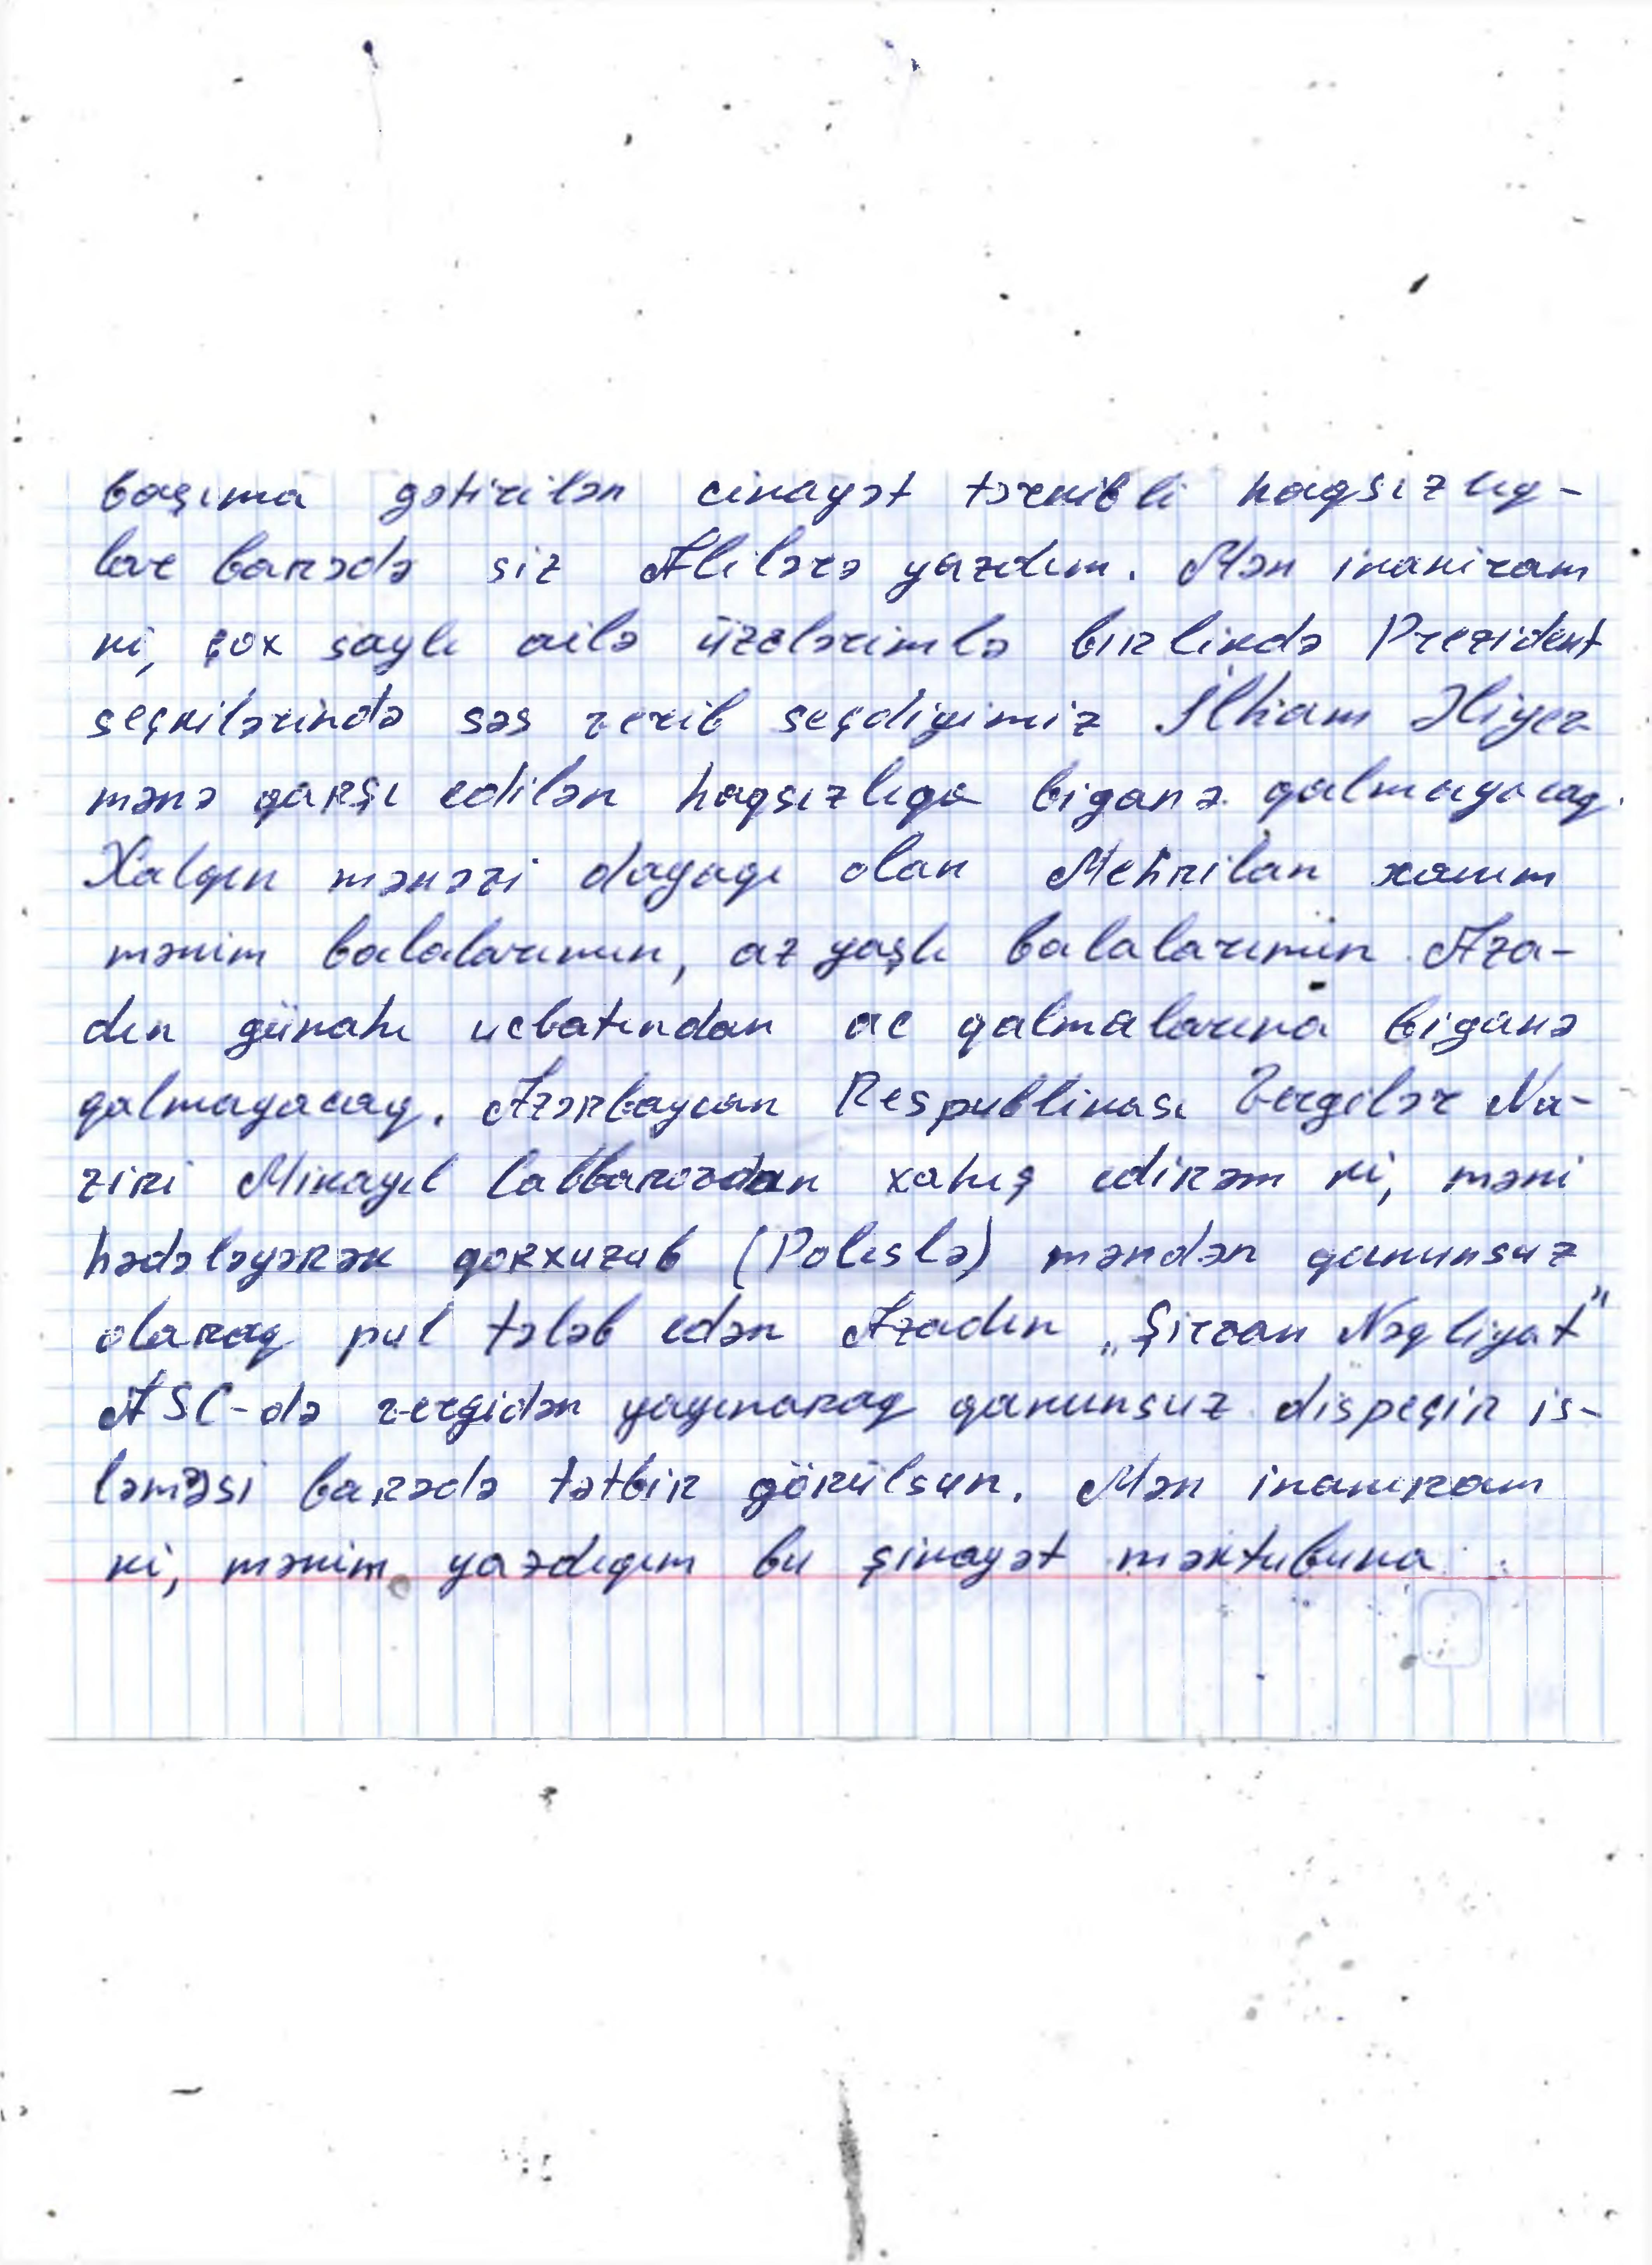 başıma gətirilən cinayət tərkibli haqsızlıq-
lar barədə siz Alilərə yazdım. Mən inaniram
ki, çox saylı ailə üzvlərimlə birlikdə Prezident
seçkilərində səs verib seçdiyimiz İlham Əliyev
mənə qarşı edilən haqsızlığa biganə qalmayacaq.
Xalqın mənəvi dayağı olan Mehriban xanım
mənim balalarımın, az yaşlı balalarımın Aza-
dın günahı ucbatından ac qalmalarına biganə
qalmayacaq. Azərbaycan Respublikası Vergilər Na-
ziri Mikayıl Cabbarovdan xahış edirəm ki, məni
hədələyərək qorxuzub (Polislə) məndən qanunsuz
olaraq pul tələb edən Azadın „Şirvan Nəqliyat"
ASC-də vergidən yayınaraq qanunsuz dispeçir iş-
ləməsi barədə tətbir görülsun. Mən inanıram
ki, mənim yazdığım bu şikayət məktubuna